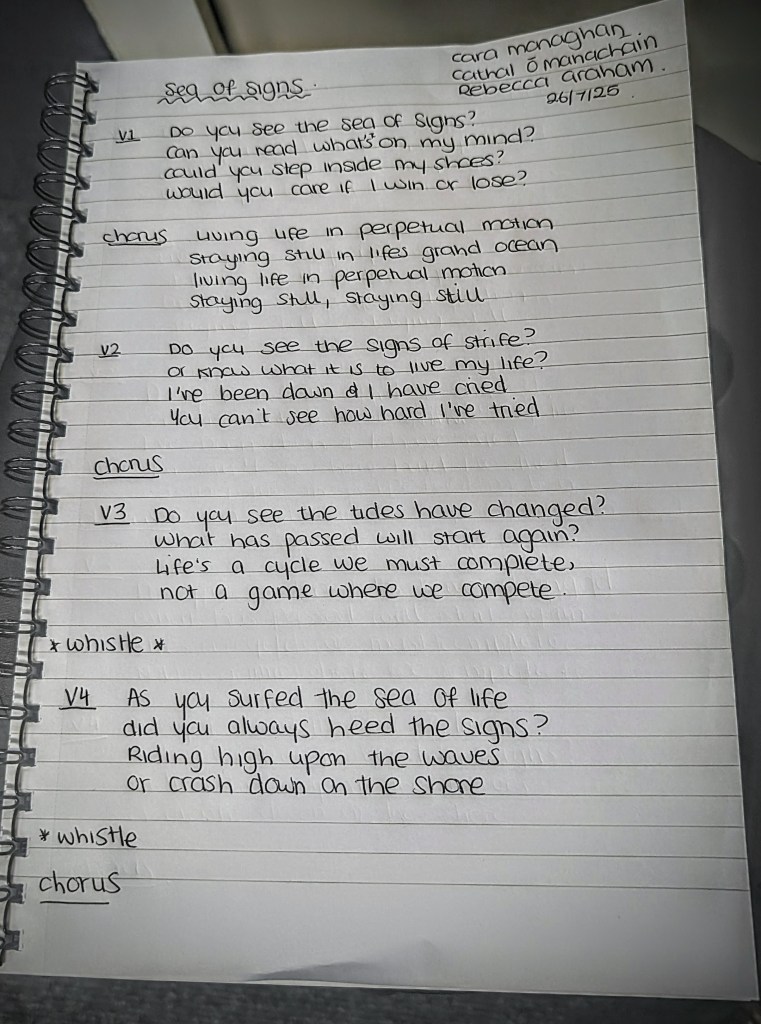 Sea of Signs.
Cara Monaghan.
Cathal Ó Manacháin
Rebecca Graham.
26/7/25.
V1 Do you see the sea of signs?
Can you read what's on my mind?
Could you step inside my shoes?
Would you care if I win or lose?
Chorus Living life in perpetual motion
Staying still in lifes grand ocean
living life in perpetual motion
Staying still, staying still
V2 Do you see the signs of strife?
or know what it is to live my life?
I've been down & I have cried
You can't see how hard I've tried
Chorus
V3 Do you see the tides have changed?
What has passed will start again?
Life's a cycle we must complete,
not a game where we compete.
* whistle *
V4 As you surfed the sea of life
did you always heed the signs?
Riding high upon the waves
or crash down on the shore
* whistle
Chorus